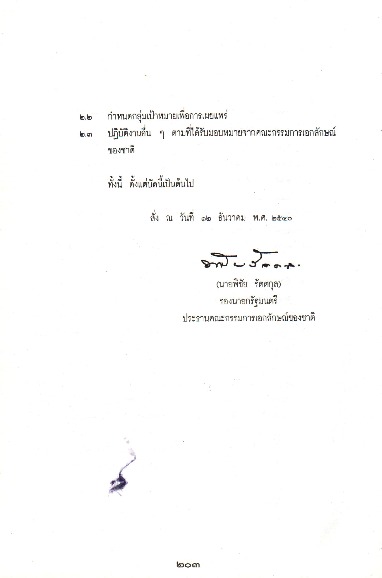 ๒.๒ กำหนดกลุ่มเป้าหมายเพื่อการเผยแพร่
๒.๓ ปฏิบัติงานอื่น ๆ ตามที่ได้รับมอบหมายจากคณะกรรมการเอกลักษณ์
ของชาติ
ทั้งนี้ ตั้งแต่บัดนี้เป็นต้นไป
สั่ง ณ วันที่ ๑๒ ธันวาคม พ.ศ. ๒๕๔๐
(นายพิชัย รัตตกุล)
รองนายกรัฐมนตรี
ประธานคณะกรรมการเอกลักษณ์ของชาติ
๒๐๓